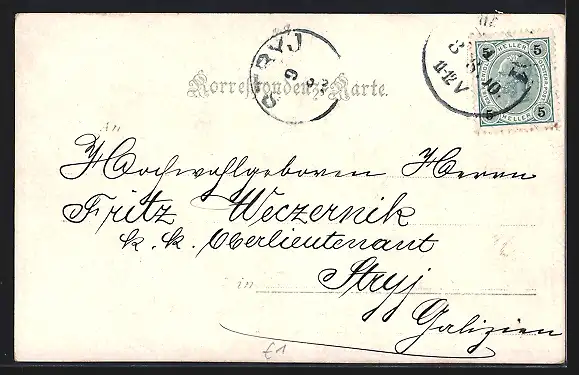 STRYJ
9
5 HELLER 5
5 HELLER 5
11-12 V
Korrespondenz-Karte.
An
Hochwohlgeboren Herrn
Fritz Weczernik
k. k. Oberlieutenant
in Stryj
Galizien
£1